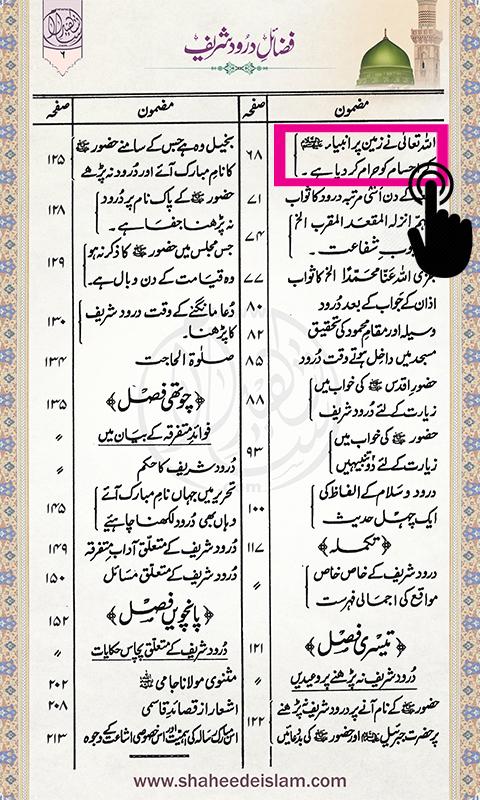 فضائلِ درود شریف
۲
مضمون صفحہ
اللہ تعالیٰ نے زمین پر انبیاء
اجسام کو حرام کر دیا ہے۔ ۶۸
کے دن اسّی مرتبہ درود کا ثواب ۷۱
انزلہ المقعد المقرب الخ
شفاعت۔ ۷۴
جزی اللہ عنا محمدًا الخ کا ثواب ۷۷
اذان کے جواب کے بعد درود ۸۰
وسیلہ اور مقامِ محمود کی تحقیق ۸۲
مسجد میں داخل ہوتے وقت درود ۸۵
حضورِ اقدس ﷺ کی خواب میں
زیارت کے لئے درود شریف ۸۸
حضور ﷺ کی خواب میں
زیارت کے لئے دو تنبیہیں ۹۳
درود و سلام کے الفاظ کی
ایک چہل حدیث ۱۰۰
﴿تکملہ﴾ ۱۱۷
درود شریف کے خاص خاص
مواقع کی اجمالی فہرست 〃
﴿تیسری فصل﴾ ۱۲۱
دُرود شریف نہ پڑھنے پر وعیدیں 〃
حضور ﷺ کے نام آنے پر درود شریف نہ پڑھنے
پر حضرت جبرئیل اور حضور ﷺ کی بددعائیں ۱۲۲
مضمون صفحہ
بخیل وہ ہے جس کے سامنے حضور ﷺ
کا نامِ مبارک آئے اور درود نہ پڑھے ۱۲۵
حضور ﷺ کے پاک نام پر دُرود
نہ پڑھنا جفا ہے۔ ۱۲۸
جس مجلس میں حضور ﷺ کا ذکر نہ ہو
وہ قیامت کے دن وبال ہے۔ ۱۲۹
دُعا مانگنے کے وقت درود شریف
کا پڑھنا۔ ۱۳۰
صلوٰۃ الحاجت ۱۳۴
﴿چوتھی فصل﴾ ۱۳۵
فوائدِ متفرقہ کے بیان میں 〃
دُرود شریف کا حکم 〃
تحریر میں جہاں نامِ مبارک آئے
وہاں بھی دُرود لکھنا چاہئے ۱۴۵
دُرود شریف کے متعلق آدابِ متفرقہ ۱۴۹
دُرود شریف کے متعلق مسائل ۱۵۰
﴿پانچویں فصل﴾ ۱۵۲
دُرود شریف کے متعلق پچاس حکایات 〃
مثنوی مولانا جامی ۲۰۲
اشعار از قصائدِ قاسمی ۲۰۸
اس مبارک رسالہ کی اہمیت اور اس کی خصوصی اشاعت کے وجوہ ۲۱۳
www.shaheedeislam.com